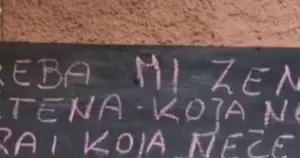 REBA MI ZEN
ETENA-KOJA NE
RA I KOJA NEĆE